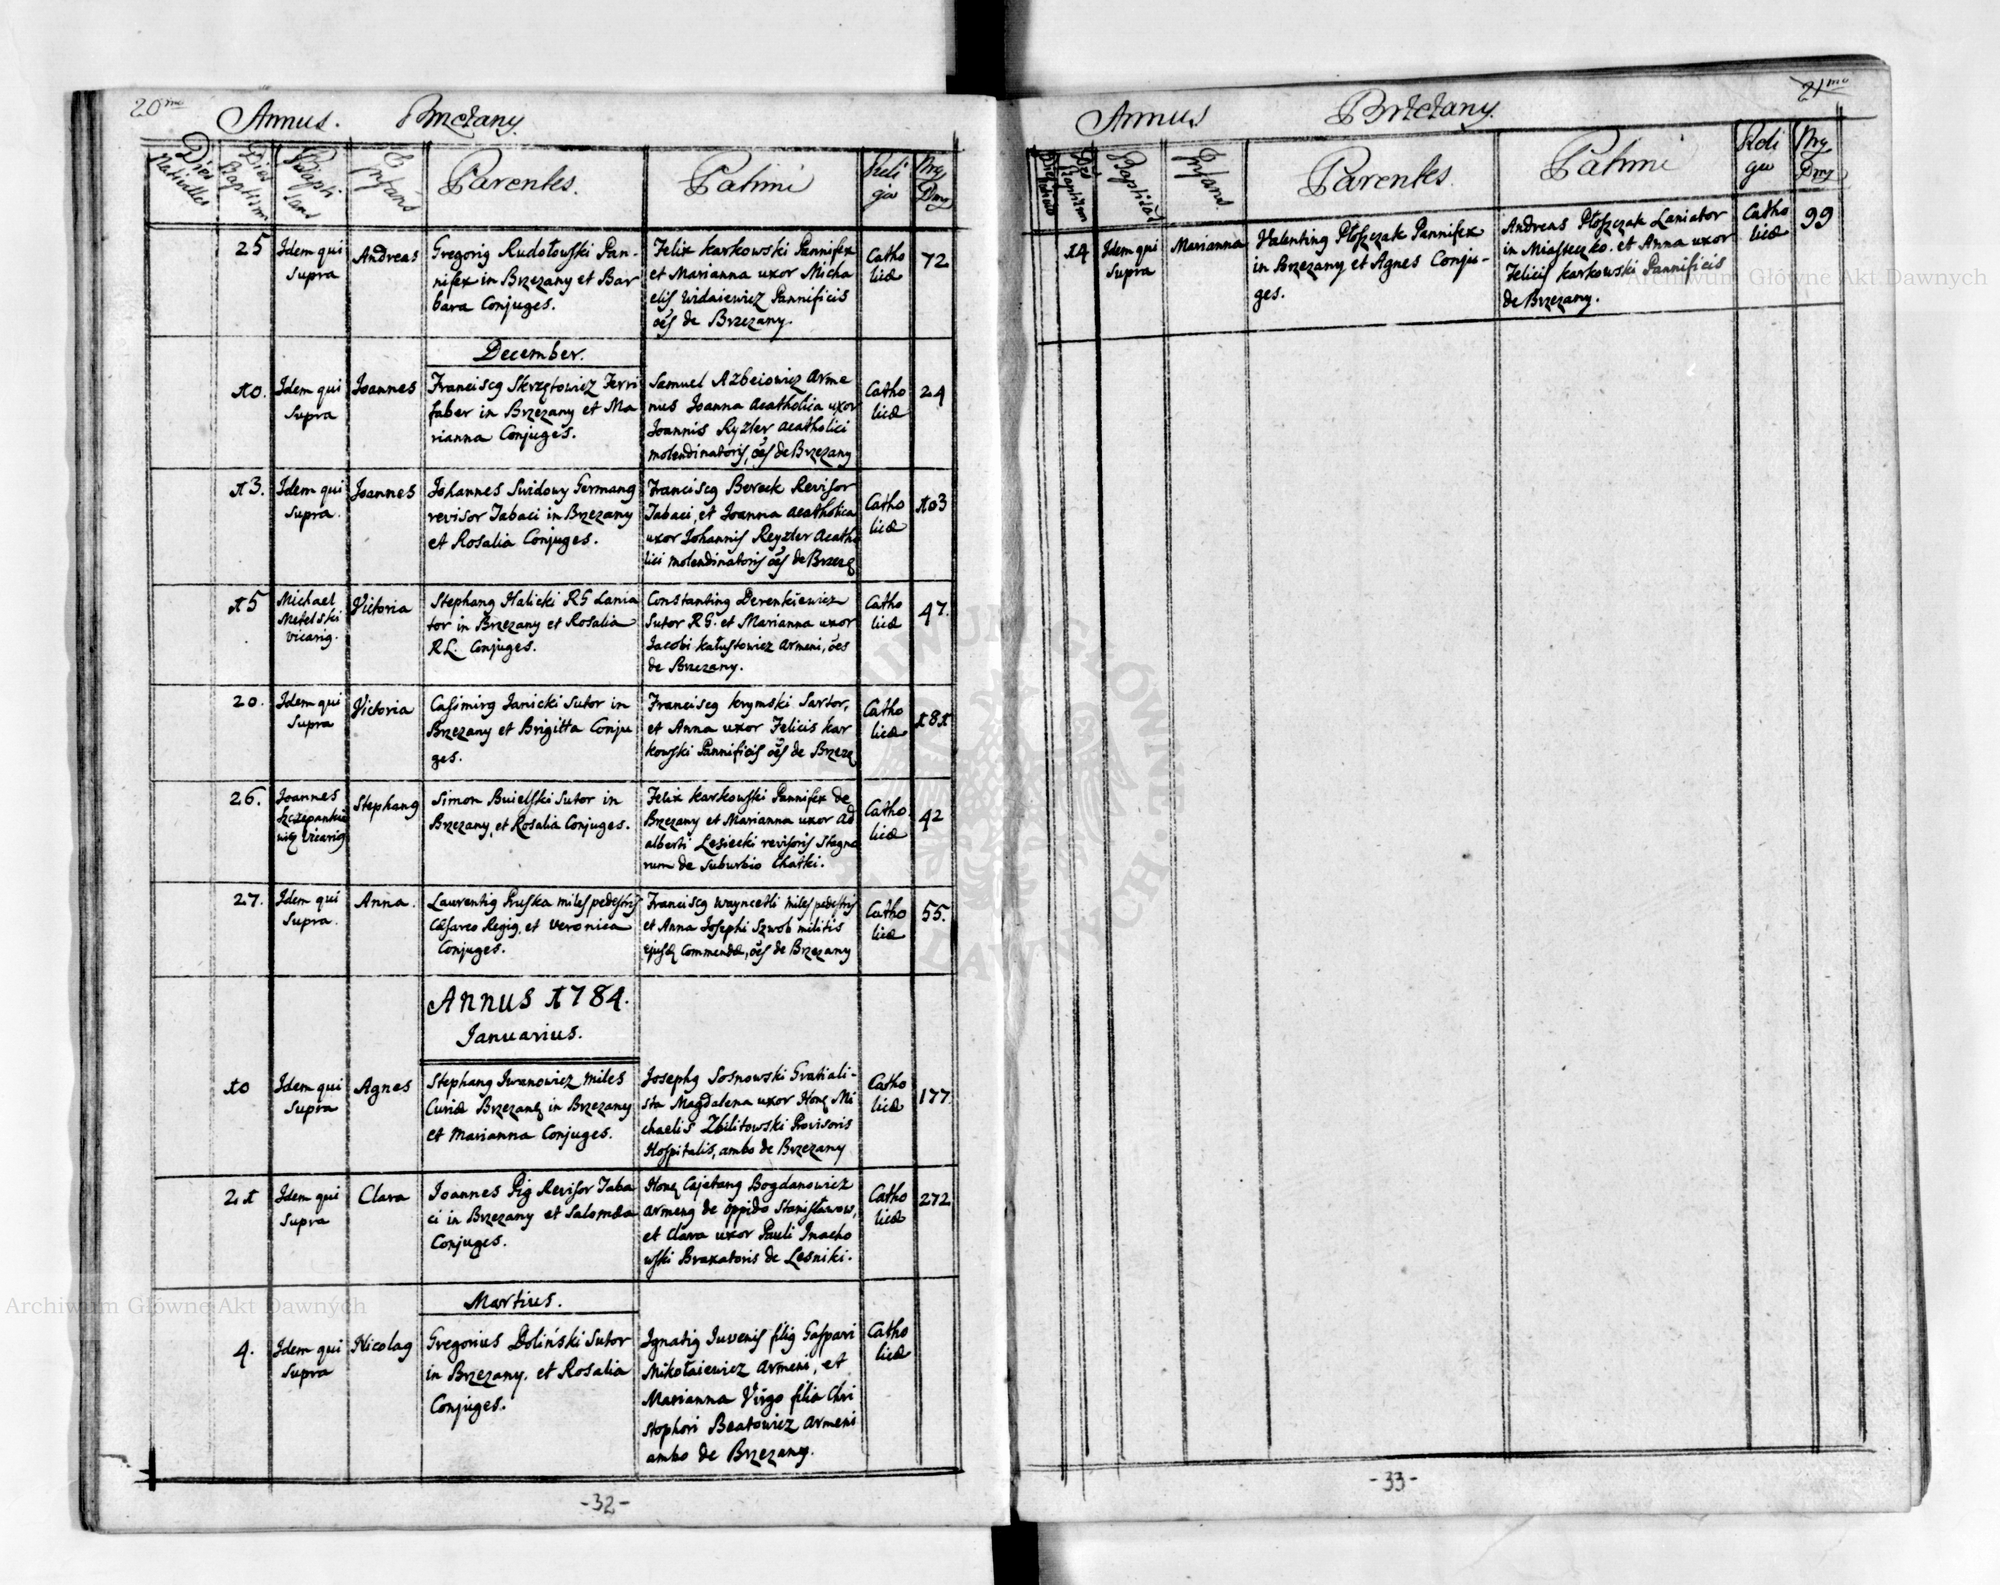 20mo
Annus. Brzeżany.
Dies Nativit.
Dies Baptism
Bapti
sans
Infans
Parentes.
Patrini
Reli
gio
Nrg
Dmg
25
Idem qui
supra
Andreas
Gregorig Rudołowski Pan-
nifex in Brzezany et Bar
bara Conjuges.
Felix Karkowski Pannifex
et Marianna uxor Micha
elis Widaiewicz Pannificis
oes de Brzezany.
Catho
licæ
72
December.
10.
Idem qui
supra
Joannes
Franciscg Skrzętowicz Ferri
faber in Brzezany et Ma
rianna Conjuges.
Samuel Azbeiowicz Arme
nus Joanna Acatholica uxor
Joannis Ryzler Acatholici
molendinatoris, oes de Brzezany
Catho
licæ
24
13.
Idem qui
supra.
Joannes
Johannes Swidowy Germang
revisor Tabaci in Brzezany
et Rosalia Conjuges.
Franciscg Bereck Revisor
Tabaci, et Joanna Acatholica
uxor Johannis Reyzler Acatho
lici molendinatoris oes de Brzez
Catho
licæ
103
15
Michael
Metelski
vicarig.
Victoria
Stephang Halicki RG Lania
tor in Brzezany et Rosalia
RL. Conjuges.
Constanting Derenkiewicz
Sutor RG. et Marianna uxor
Jacobi Kałustowicz Armeni, oes
de Brzezany.
Catho
licæ
47.
20.
Idem qui
supra
Victoria
Casimirg Janicki Sutor in
Brzezany et Brigitta Conju
ges.
Franciscg Krymski Sartor,
et Anna uxor Felicis Kar
kowski Pannificis oes de Brzez
Catho
licæ
181
26.
Joannes
Szczepankie
witz Vicarig
Stephang
Simon Buielski Sutor in
Brzezany, et Rosalia Conjuges.
Felix Karkowski Pannifex de
Brzezany et Marianna uxor Ad
alberti Lesiecki revisoris Stagno
rum de Suburbio Chatki.
Catho
licæ
42
27.
Idem qui
supra.
Anna.
Laurentig Pruska miles pedestris
Cæsareo Regig, et Veronica
Conjuges.
Franciscg Wayncetli miles pedestris
et Anna Josephi Szwob militis
ejusd Commendæ, oes de Brzezany
Catho
licæ
55.
Annus 1784.
Januarius.
10
Idem qui
supra
Agnes
Stephang Iwanowicz miles
Curiæ Brzezane in Brzezany
et Marianna Conjuges.
Josephg Sosnowski Gratiali-
sta Magdalena uxor Hone Mi
chaelis Zbilitowski Provisoris
Hospitalis, ambo de Brzezany
Catho
licæ
177.
21
Idem qui
supra
Clara
Joannes Pig Revisor Taba
ci in Brzezany et Salomæa
Conjuges.
Hone Cajetang Bogdanowicz
Armeng de oppido Stanisławow,
et Clara uxor Pauli Inacho
wski Braxatoris de Lesniki.
Catho
licæ
272
Martius.
4.
Idem qui
supra
Nicolag
Gregorius Doliński Sutor
in Brzezany. et Rosalia
Conjuges.
Ignatig Juvenis filig Gaspari
Mikołaiewicz Armeni, et
Marianna Virgo filia Chri
stophori Beatowicz Armeni
ambo de Brzezany.
Catho
licæ
-32-
21mo
Annus Brzeżany.
Dies Baptism
Infans
Parentes.
Patrini
Reli
gio
Nrg
Dmg
14
Idem qui
supra
Marianna
Valenting Płoszczak Pannifex
in Brzezany et Agnes Conju-
ges.
Andreas Płoszczak Laniator
in Miasteczko. et Anna uxor
Felicis Karkowski Pannificis
de Brzezany.
Catho
licæ
99
-33-
Archiwum Główne Akt Dawnych
Archiwum Główne Akt Dawnych